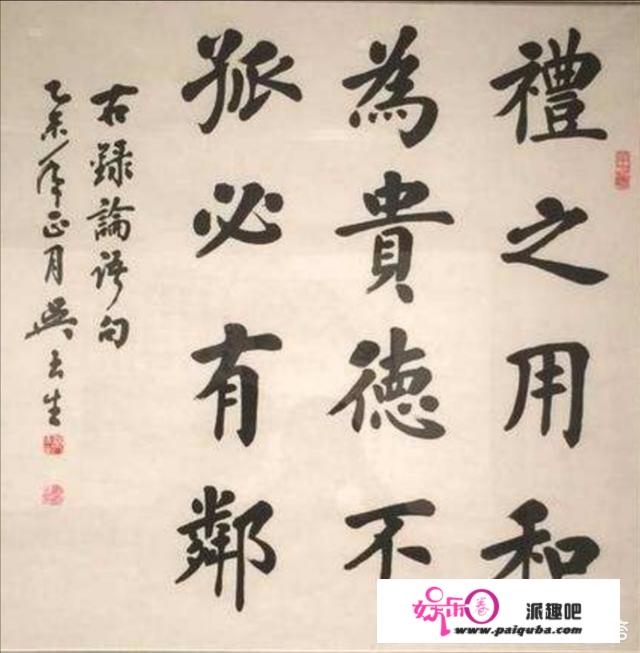 禮之用和
為貴德不
孤必有鄰
右錄論語句
乙未年正月吳玄生
娱乐圈
派趣吧
www.paiquba.com